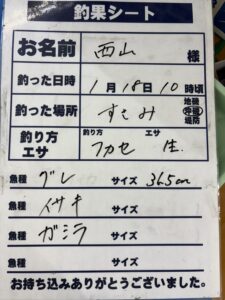 釣果シート
お名前 西山 様
釣った日時 1月18日10時頃
釣った場所 すさみ 地磯 沖磯 堤防
釣り方 エサ 釣り方 フカセ エサ 生
魚種 グレ サイズ 36.5cm
魚種 イサキ サイズ
魚種 ガシラ サイズ
魚種 サイズ
お持ち込みありがとうございました。